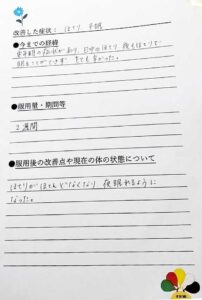 改善した症状： ほてり 不眠
●今までの経緯
更年期の症状があり、日中のほてり 夜もほてりで
眠ることができず とても辛かった。
●服用量・期間等
2週間
●服用後の改善点や現在の体の状態について
ほてりがほとんどなくなり 夜眠れるように
なった。